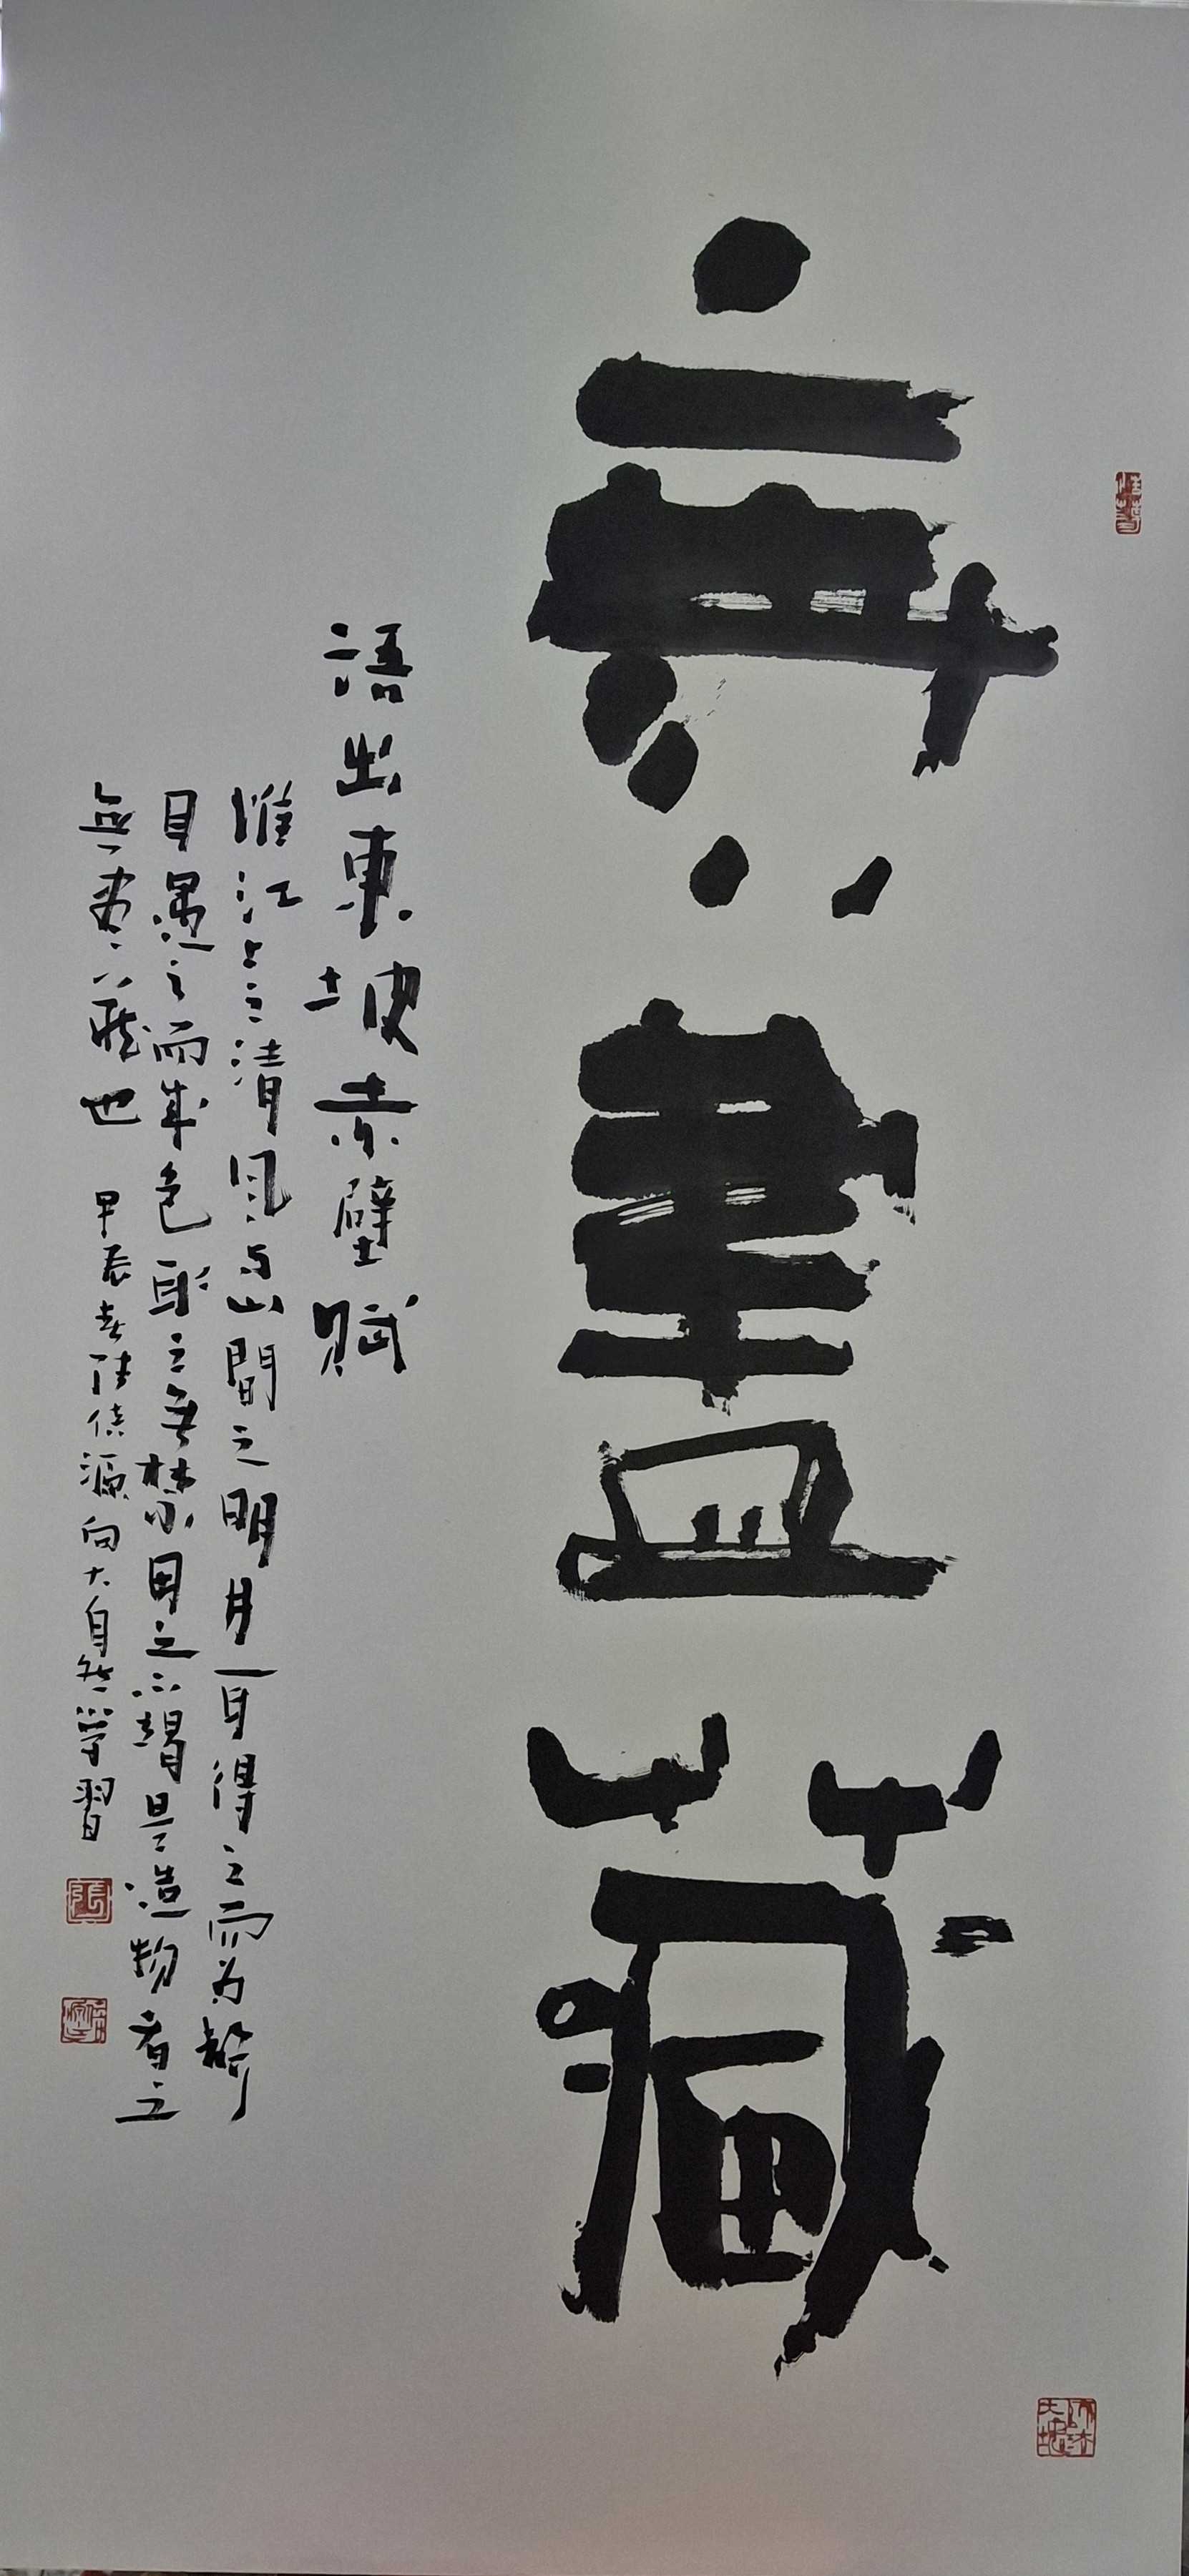 無盡藏
語出東坡赤壁賦
惟江上之清風與山間之明月耳得之而為聲
目遇之而成色取之無禁用之不竭是造物者之
無盡藏也 甲辰春張信源向大自然學習
張